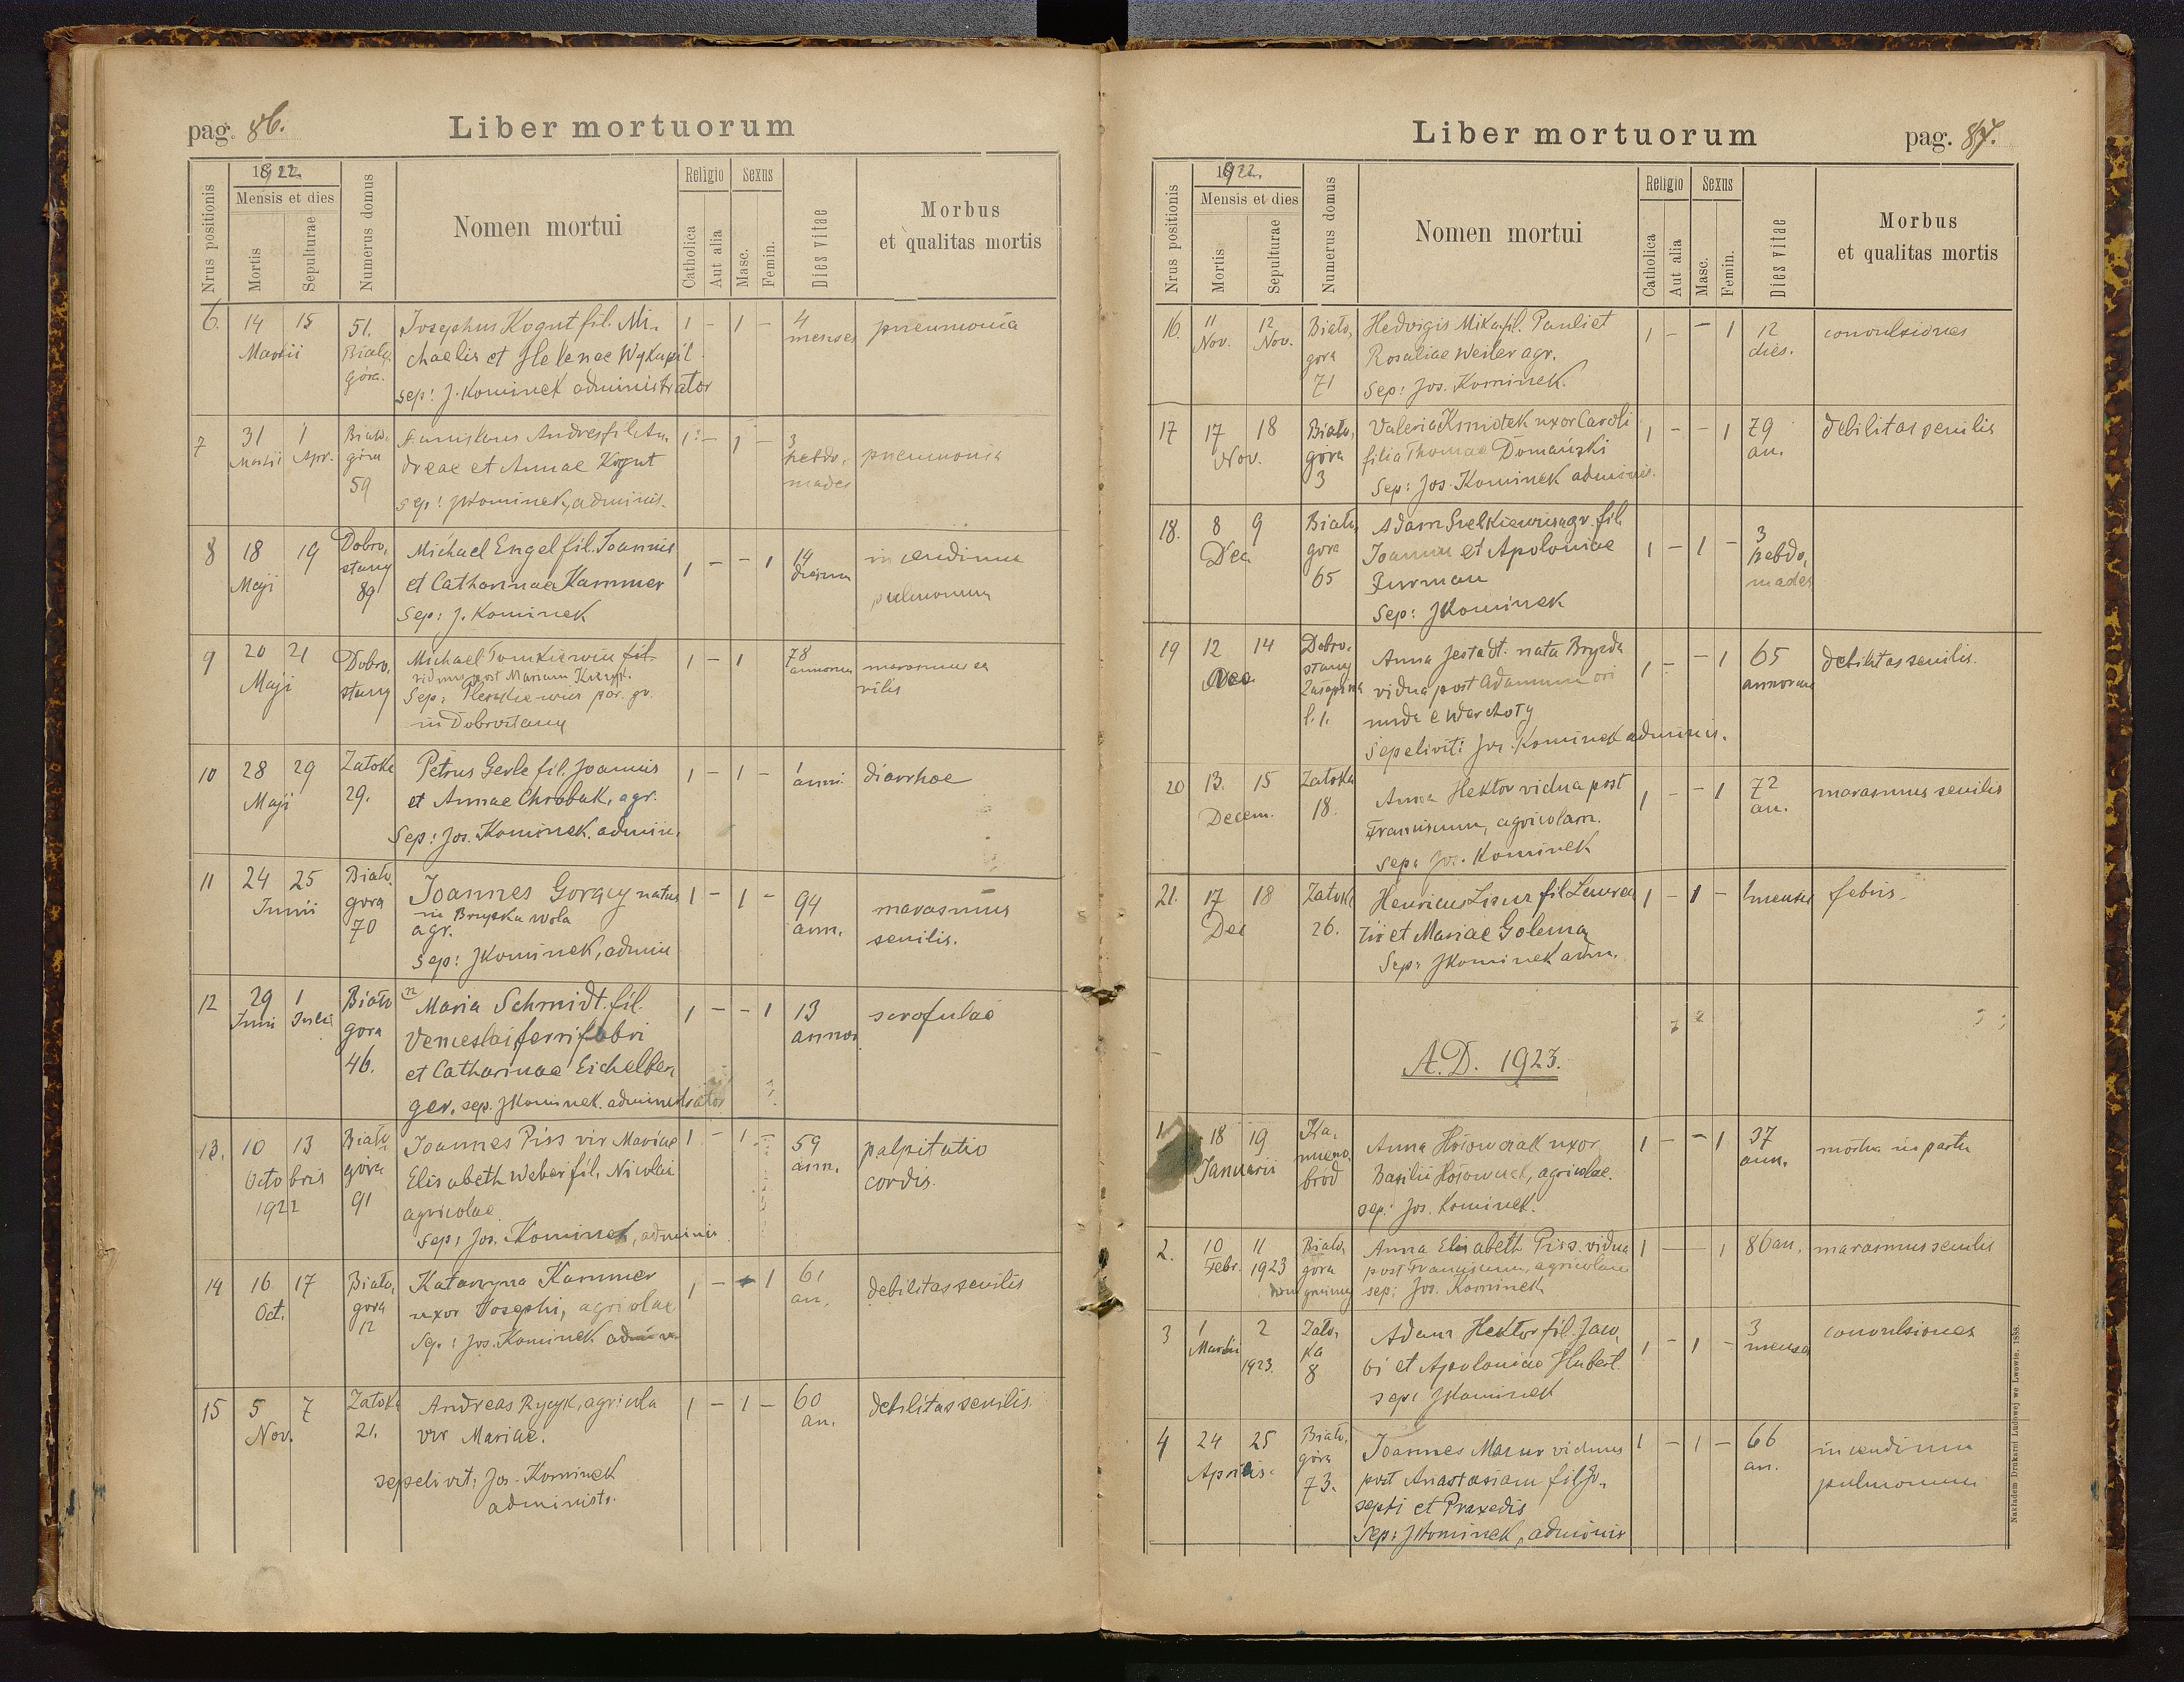 pag. 86.
Liber mortuorum
1922.
Nrus positionis
Mensis et dies
Mortis
Sepulturae
Numerus domus
Nomen mortui
Religio
Catholica
Aut alia
Sexus
Masc.
Femin.
Dies vitae
Morbus
et qualitas mortis
6. 14 15 51. Josephus Kogut fil. Mi- 1 - 1 - 4 pneumonia
Martii Biało- chaelis et Helenae Wykupil menses
góra. sep: J. Kominek administrator
7 31 1 Biało- Stanislaus Andres fil. An- 1 - 1 - 3 pneumonia
Martii Apr. góra dreae et Annae Kogut hebdo-
59 sep: JKominek, adminis. mades
8 18 19 Dobro- Michael Engel fil. Joannis 1 - - 1 14 incendium
Maji stany et Catharinae Kammer dierum pulmonum
89 Sep: J. Kominek
9 20 21 Dobro- Michael Tomkiewicz fil. 1 - 1 78 marasmus se
Maji stany viduus post Mariam annorum nilis
Sep: par. gr.
in Dobrostany
10 28 29 Zatoka Petrus Gerle fil. Joannis 1 - 1 - 1 diarrhoe
Maji 29. et Annae Chrobak, agr. anni.
Sep: Jos. Kominek. admin.
11 24 25 Biało- Joannes Gorący natus 1 - 1 - 94 marasmus
Junii gora in Bryczka Wola ann. senilis.
70 agr.
Sep: JKominek, admin
12 29 1 Biało Maria Schmidt. fil. 1 - - 1 13 scrofulae
Juni Julii gora Venceslai, ferrifabri annos
46. et Catharinae Eichelber-
ger. sep. JKominek. administrator
13. 10 13 Biało Joannes Piss vir Mariae 1 - 1 59 palpitatio
Octobris góra Elisabeth Weber fil. Nicolai ann. cordis.
1922 91 agricolae
sep: Jos. Kominek, adminis
14 16 17 Biało- Katarzyna Kammer 1 - - 1 61 debilitas senilis
Oct. gora uxor Josephi, agricolae an.
12 Sep: Jos. Kominek admin
15 5 7 Zatoka Andreas Rycyk, agricola 1 - 1 - 60 debilitas senilis
Nov. 21. vir Mariae. an.
sepelivit: Jos. Kominek
administr.
Liber mortuorum
pag. 87.
1922.
Nrus positionis
Mensis et dies
Mortis
Sepulturae
Numerus domus
Nomen mortui
Religio
Catholica
Aut alia
Sexus
Masc.
Femin.
Dies vitae
Morbus
et qualitas mortis
16. 11 12 Biało- Hedvigis Mika fil. Pauli et 1 - - 1 12 convulsiones
Nov. Nov. gora Rosaliae Weiler agr. dies.
71 Sep: Jos. Kominek.
17 17 18 Biało- Valeria Kmiotek uxor Caroli 1 - - 1 79 debilitas senilis
Nov. góra filia Thomae Domański an.
3 Sep: Jos. Kominek adminis.
18. 8 9 Biało- Adam agr. fil. 1 - 1 - 3
Dec. gora Joannis et Apoloniae hebdo-
65 Furman mades
Sep: JKominek
19 12 14 Dobro- Anna Jestadt. nata Bryzda 1 - - 1 65 debilitas senilis.
Dec. stany vidua post Adamum ori annorum
l. 1. unda e Wderchoty
Sepelivit: Jos. Kominek adminis.
20 13. 15 Zatoka Anna Hektor vidua post 1 - - 1 72 marasmus senilis
Decem. 18. Franciscum, agricolam. an.
sep: Jos. Kominek
21. 17 18 Zatoka Henricus Lisur fil Lauren 1 - 1 - 1 mensis febris.
Dec 26. tii et Mariae Golema
Sep: JKominek adm.
A.D. 1923.
1 18 19 Ka- Anna Hojowczak uxor 1 - - 1 37 mortua in partu
Januarii mieno- Basilii Hojowczak, agricolae. ann.
bród sep: Jos. Kominek.
2. 10 11 Biało- Anna Elisabeth Piss. vidua 1 - - 1 86 an. marasmus senilis
Febr. 1923 góra post Franciscum, agricolam
dom gminny sep: Jos. Kominek
3 1 2 Zato- Adam Hektor fil. Jaco- 1 - 1 - 3 convulsiones
Martii 1923. ka bi et Apoloniae Hubert menses
8 sep: JKominek
4 24 25 Biało- Joannes Mazur viduus 1 - 1 - 66 incendium
Aprilis. góra post Anastasiam fil Jo- an. pulmonum
73. sephi et Praxedis
Sep: JKominek, adminis
Nakładem Drukarni Ludowej we Lwowie. 1888.